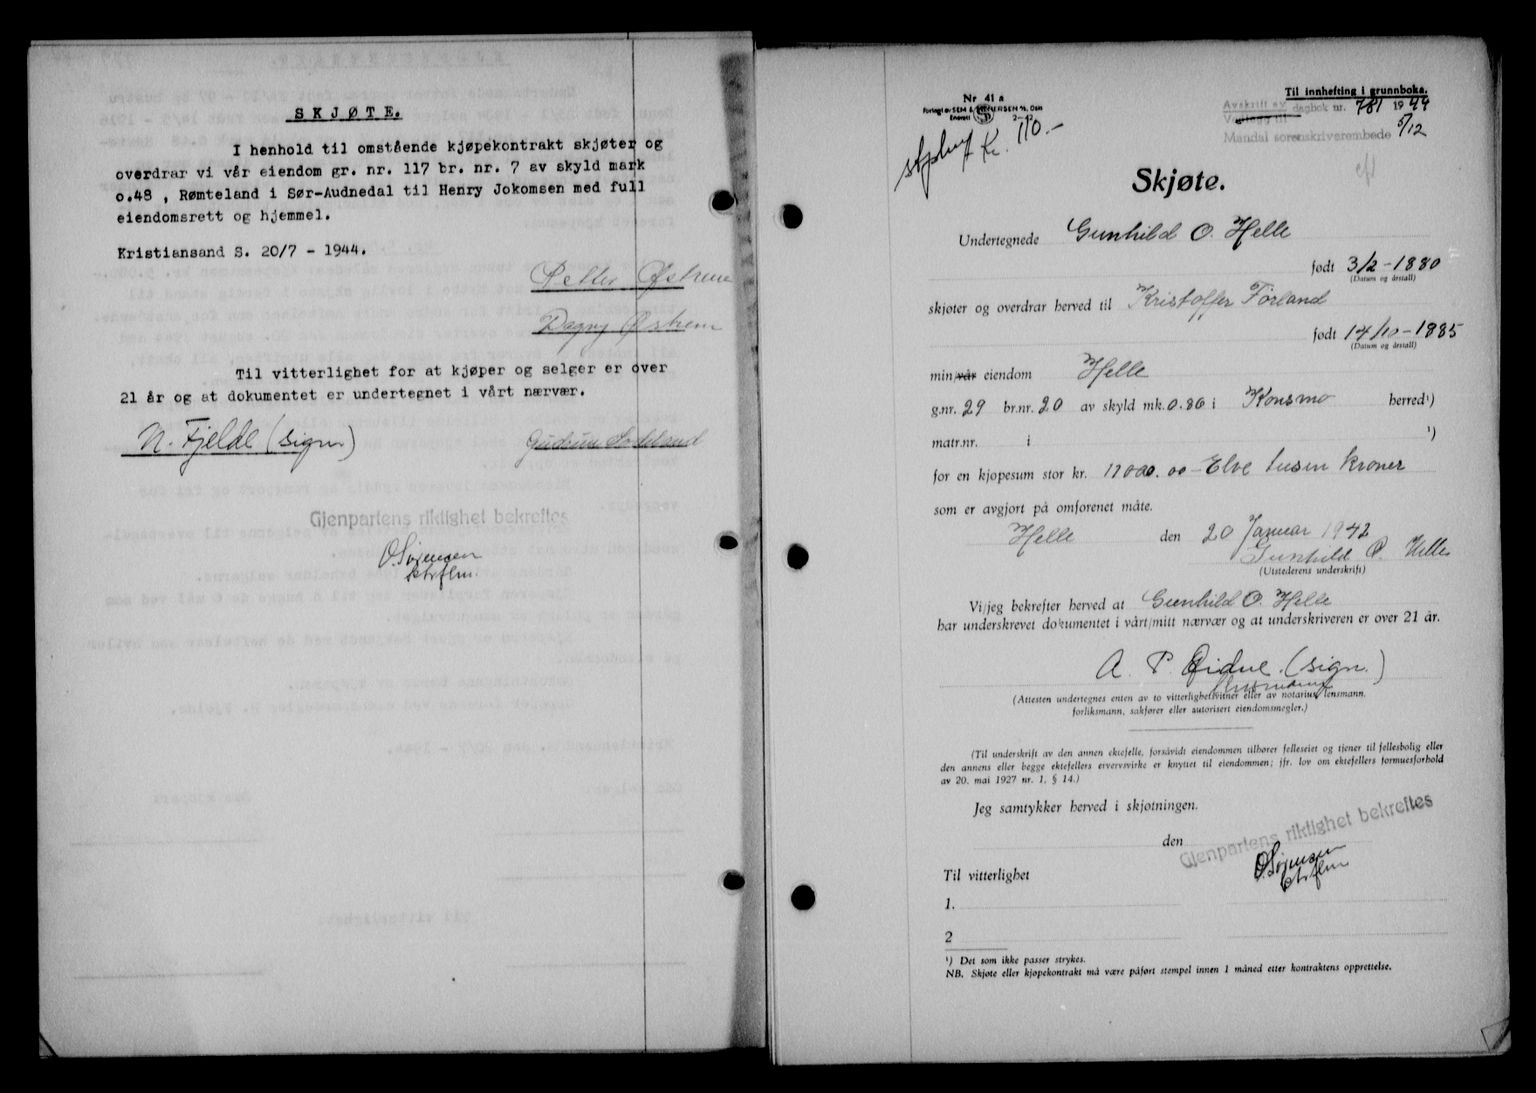 SKJØTE.
I henhold til omstående kjøpekontrakt skjøter og
overdrar vi vår eiendom gr. nr. 117 br. nr. 7 av skyld mark
0.48 , Rømteland i Sør-Audnedal til Henry Jokomsen med full
eiendomsrett og hjemmel.
Kristiansand S. 20/7 - 1944.
Petter Østrem
Dagny Østrem
Til vitterlighet for at kjøper og selger er over
21 år og at dokumentet er undertegnet i vårt nærvær.
N. Fjelde (sign)
Gudrun
Gjenpartens riktighet bekreftes
O. Sørensen
Til innhefting i grunnboka.
Nr 41 a
Forlagt av SEM & STENERSEN A/S, Oslo
Enerett 2-42
Avskrift av dagbok nr. 781 1944
Mandal sorenskriverembede 5/12
stpl Kr. 110.-
Skjøte.
Undertegnede Gunhild O. Helle
født 3/2 - 1880
(Datum og årstall)
skjøter og overdrar herved til Kristoffer Førland
født 14/10 - 1885
(Datum og årstall)
min/vår eiendom Helle
g.nr. 29 br.nr. 20 av skyld mk. 0.86 i Konsmo herred¹)
matr.nr. i ¹)
for en kjøpesum stor kr. 11000.00 - Elve tusen kroner
som er avgjort på omforenet måte.
Helle den 20 Januar 1942
Gunhild O. Helle
(Utstederens underskrift)
Vi/jeg bekrefter herved at Gunhild O. Helle
har underskrevet dokumentet i vårt/mitt nærvær og at underskriveren er over 21 år.
A. P. Eidne. (sign.)
(Attesten undertegnes enten av to vitterlighetsvitner eller av notarius, lensmann,
forliksmann, sakfører eller autorisert eiendomsmegler.)
(Til underskrift av den annen ektefelle, forsåvidt eiendommen tilhører felleseiet og tjener til fellesbolig eller
den annens eller begge ektefellers ervervsvirke er knyttet til eiendommen; jfr. lov om ektefellers formuesforhold
av 20. mai 1927 nr. 1, § 14.)
Jeg samtykker herved i skjøtningen.
den
Gjenpartens riktighet bekreftes
O. Sørensen
Til vitterlighet
1.
2
¹) Det som ikke passer strykes.
NB. Skjøte eller kjøpekontrakt må være påført stempel innen 1 måned etter kontraktens opprettelse.